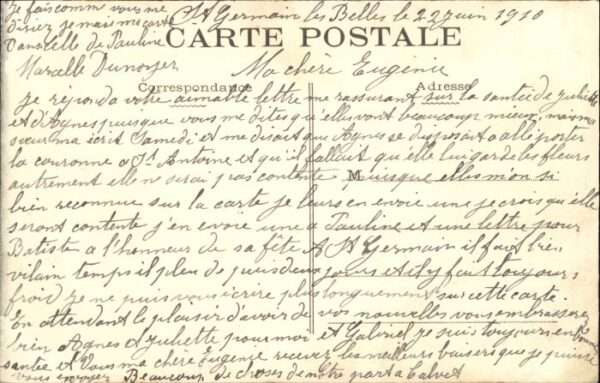 Je fais comm vous me
diriez je mais me carte
dans celle de Pauline
Marcelle Dunoyer
St Germain les Belles le 22 juin 1910
CARTE POSTALE
Ma chère Eugénie
Correspondance
Adresse
Je réponds votre aimable lettre me rassurant sur la santée de Juliette
et d'Agnes puisque vous me dites qu'elles vont beaucoup mieux, mais ma
sœur ma écrit Samedi et me disait que Agnes se disposait a allé porter
la couronne a St Antoine et qu'il fallait qu'elle lui gardé les fleurs
autrement elle n serai pas contente
M
Puisque elles m'on si
bien reconnue sur la carte je leurs en envoie une je crois qu'elle
seront contente j'en envoie une a Pauline et une lettre pour
Batiste a l'honneur de sa fête A St Germain il fait trè
vilain temps il pleu de puis deux jours et il y fait toujours
froid je ne puis vous écrire plus longuement sur cette carte.
En attendant le plaisir d'avoir de vos nouvelles vous embrasserez
bien Agnes et Juliette pour moi et Gabriel je suis toujours en bonne
santée et Vous ma chère Eugénie recevez les meilleurs baisers que je puisse
vous envoyer Beaucoup de choses de notre part a Calvet